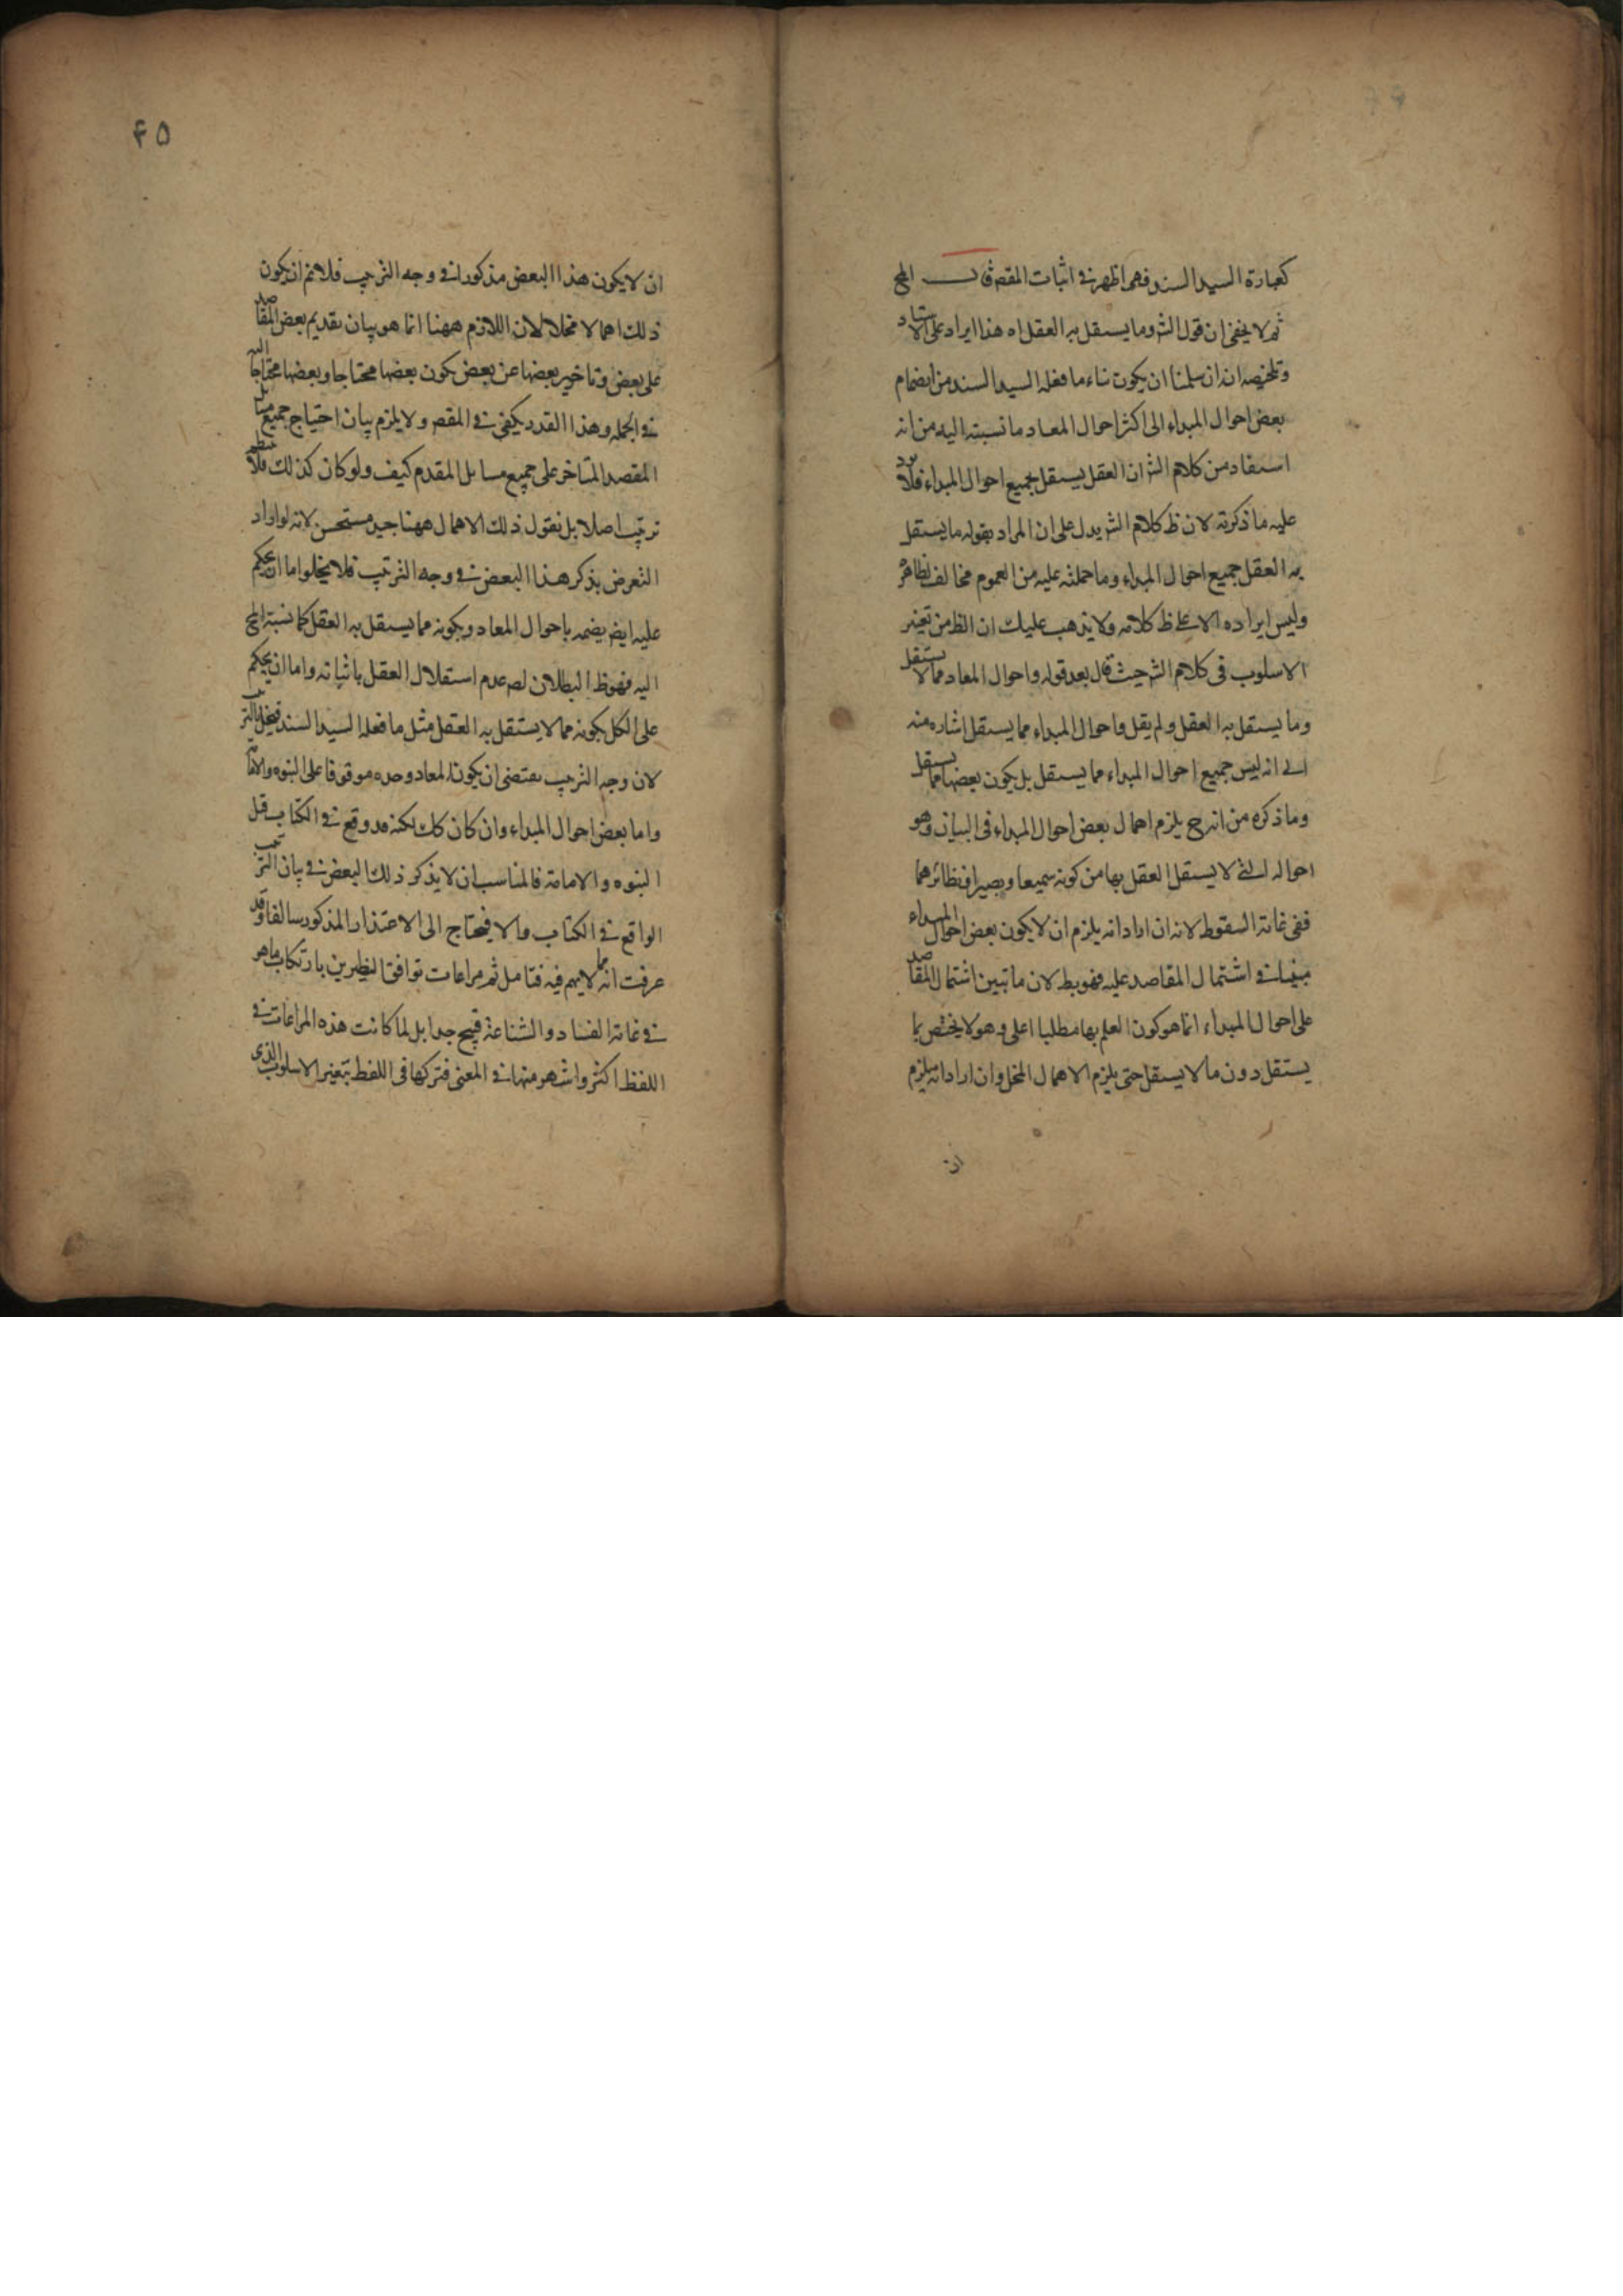 كعبارة السيد السند فهى اظهر فى اثبات المقصد قال المح
ثم لا يخفى ان قول الش وما يستقل به العقل اه هذا ايراد على الاستاد
وتلخيصه انه ان سلمنا ان يكون بناء ما فعله السيد السند من انضمام
بعض احوال المبداء الى اكثر احوال المعاد ما نسبته اليه من انه
استفاد من كلام الش ان العقل يستقل بجميع احوال المبداء فلا يرد
عليه ما ذكرته لان ظ كلام الش يدل على ان المراد بقوله ما يستقل
به العقل جميع احوال المبداء وما حملته عليه من العموم مخالف لظاهره
وليس ايراده الا على ظ كلامه ولا يذهب عليك ان الظ من تغير
الاسلوب فى كلام الش حيث قال بعد قوله واحوال المعاد مما لا يستقل
وما يستقل به العقل ولم يقل واحوال المبداء مما يستقل اشاره منه
الى انه ليس جميع احوال المبداء مما يستقل بل يكون بعضها مما يستقل
وما ذكره من انه ح يلزم اهمال بعض احوال المبداء فى البيان وهو
احواله التى لا يستقل العقل بها من كونه سميعا وبصيرا ونظائرهما
ففى غاية السقوط لانه ان اراد انه يلزم ان لا يكون بعض احوال المبداء
مبينا فى اشتمال المقاصد عليه فهو بط لان ما تبين اشتمال المقاصد
على احوال المبداء انما هو كون العلم بها مطلبا اعلى وهو لا يختص بما
يستقل دون ما لا يستقل حتى يلزم الاهمال المخل وان اراد انه يلزم
ان
۴۵
ان لا يكون هذا البعض مذكورا فى وجه الترتيب فلا نم ان يكون
ذلك اهمالا مخلا لان اللازم ههنا انما هو بيان تقديم بعض المقاصد
على بعض وتاخير بعضها عن بعض بكون بعضها محتاجا وبعضها محتاجا اليه
فى الجمله وهذا القدر يكفى فى المقصد ولا يلزم بيان احتياج جميع مسائل
المقصد المتاخر على جميع مسائل المقدم كيف ولو كان كذلك فلا ينتظم
ترتيب اصلا بل نقول ذلك الاهمال ههنا جيد مستحسن لانه لو اراد
التعرض بذكر هذا البعض فى وجه الترتيب فلا يخلوا اما ان يحكم
عليه ايض بضمه باحوال المعاد وبكونه مما يستقل به العقل كما نسبته المح
اليه فهو ظ البطلان لصد عدم استقلال العقل باثباته واما ان يحكم
على الكل بكونه مما لا يستقل به العقل مثل ما فعله السيد السند فيختل الترتيب
لان وجه الترتيب يقتضى ان يكون المعاد وحده موقوفا على النبوه والامامه
واما بعض احوال المبداء وان كان كك لكنه قد وقع فى الكتاب قبل
النبوه والامامة فالمناسب ان لا يذكر ذلك البعض فى بيان الترتيب
الواقع فى الكتاب والا فيحتاج الى الاعتذار المذكور سالفا وقد
عرفت انه مما لا يهم فيه فتامل ثم مراعات توافق النظيرين بارتكاب ما هو
فى غاية الفساد والشناعة قبيح جدا بل لما كانت هذه المراعات فى
اللفظ اكثر واشهر منها فى المعنى فتركها فى اللفظ بتغير الاسلوب الذى